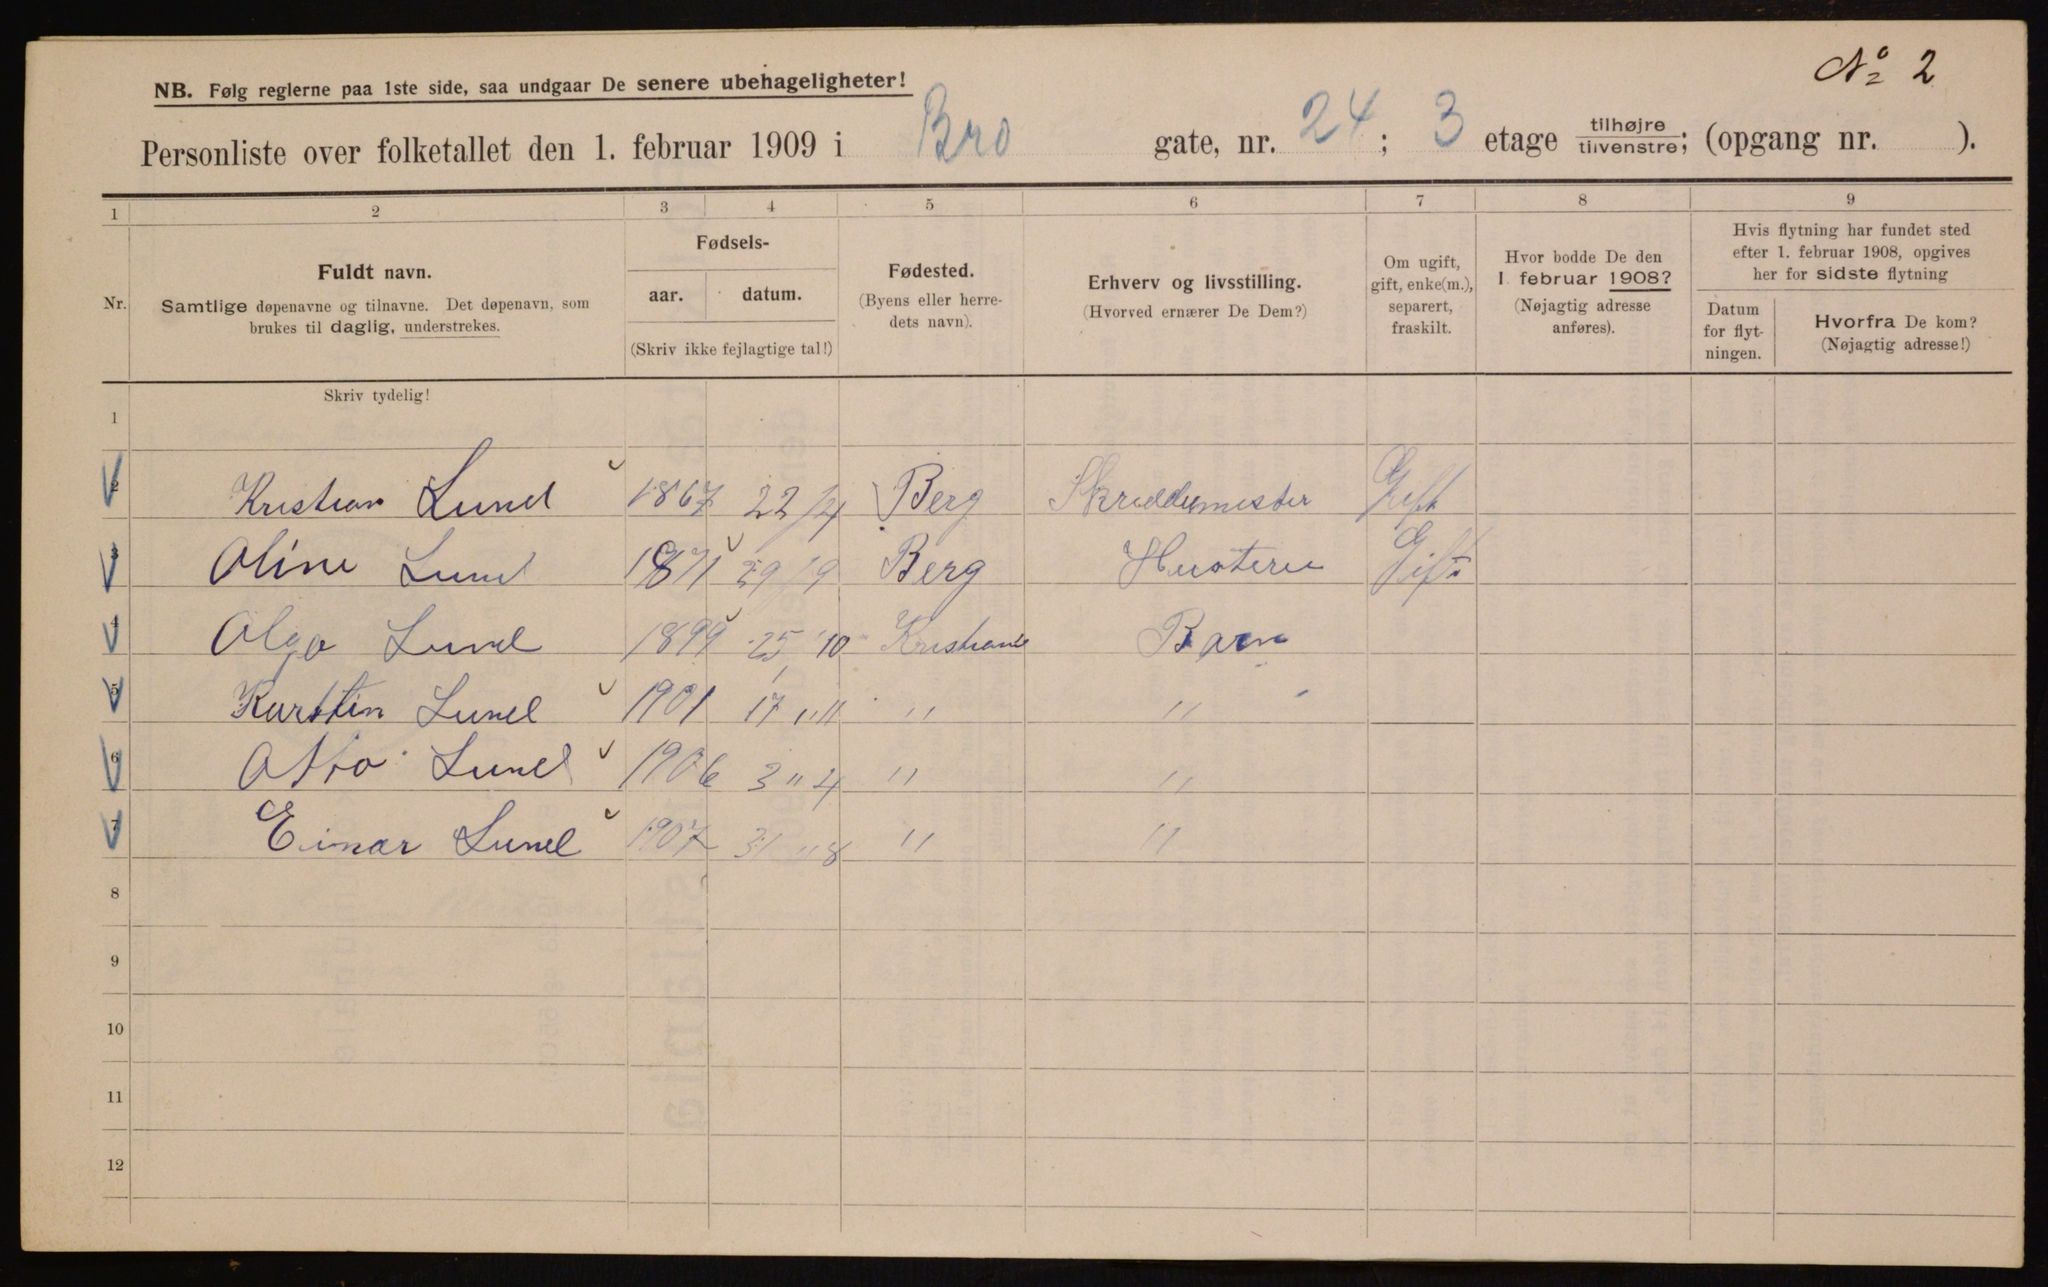 Nº 2
NB. Følg reglerne paa 1ste side, saa undgaar De senere ubehageligheter!
Personliste over folketallet den 1. februar 1909 i Bro gate, nr. 24; 3 etage tilhøjre tilvenstre; (opgang nr. ).
1 2 3 4 5 6 7 8 9
Nr.
Fuldt navn.
Samtlige døpenavne og tilnavne. Det døpenavn, som
brukes til daglig, understrekes.
Fødsels-
aar. datum.
(Skriv ikke fejlagtige tal!)
Fødested.
(Byens eller herre-
dets navn).
Erhverv og livsstilling.
(Hvorved ernærer De Dem?)
Om ugift,
gift, enke(m.),
separert,
fraskilt.
Hvor bodde De den
1. februar 1908?
(Nøjagtig adresse
anføres).
Hvis flytning har fundet sted
efter 1. februar 1908, opgives
her for sidste flytning
Datum
for flyt-
ningen.
Hvorfra De kom?
(Nøjagtig adresse!)
Skriv tydelig!
1
2 Kristian Lund 1867 22/4 Berg Skreddermester Gift
3 Oline Lund 1871 29/9 Berg Husteru Gift
4 Olga Lund 1899 25 10 Kristiania Barn
5 Karstin Lund 1901 17 " 11 " "
6 Otto Lund 1906 3 " 4 " "
7 Einar Lund 1907 31 " 8 " "
8
9
10
11
12